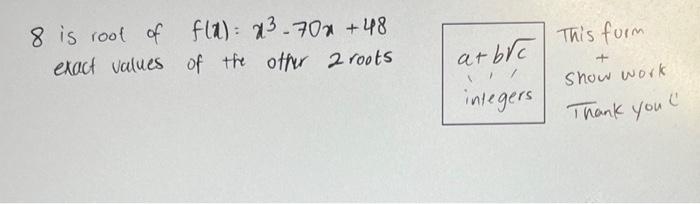 8 is root of f(x) = x³ - 70x + 48
exact values of the other 2 roots
a + b√c
integers
This form
+
show work
Thank you